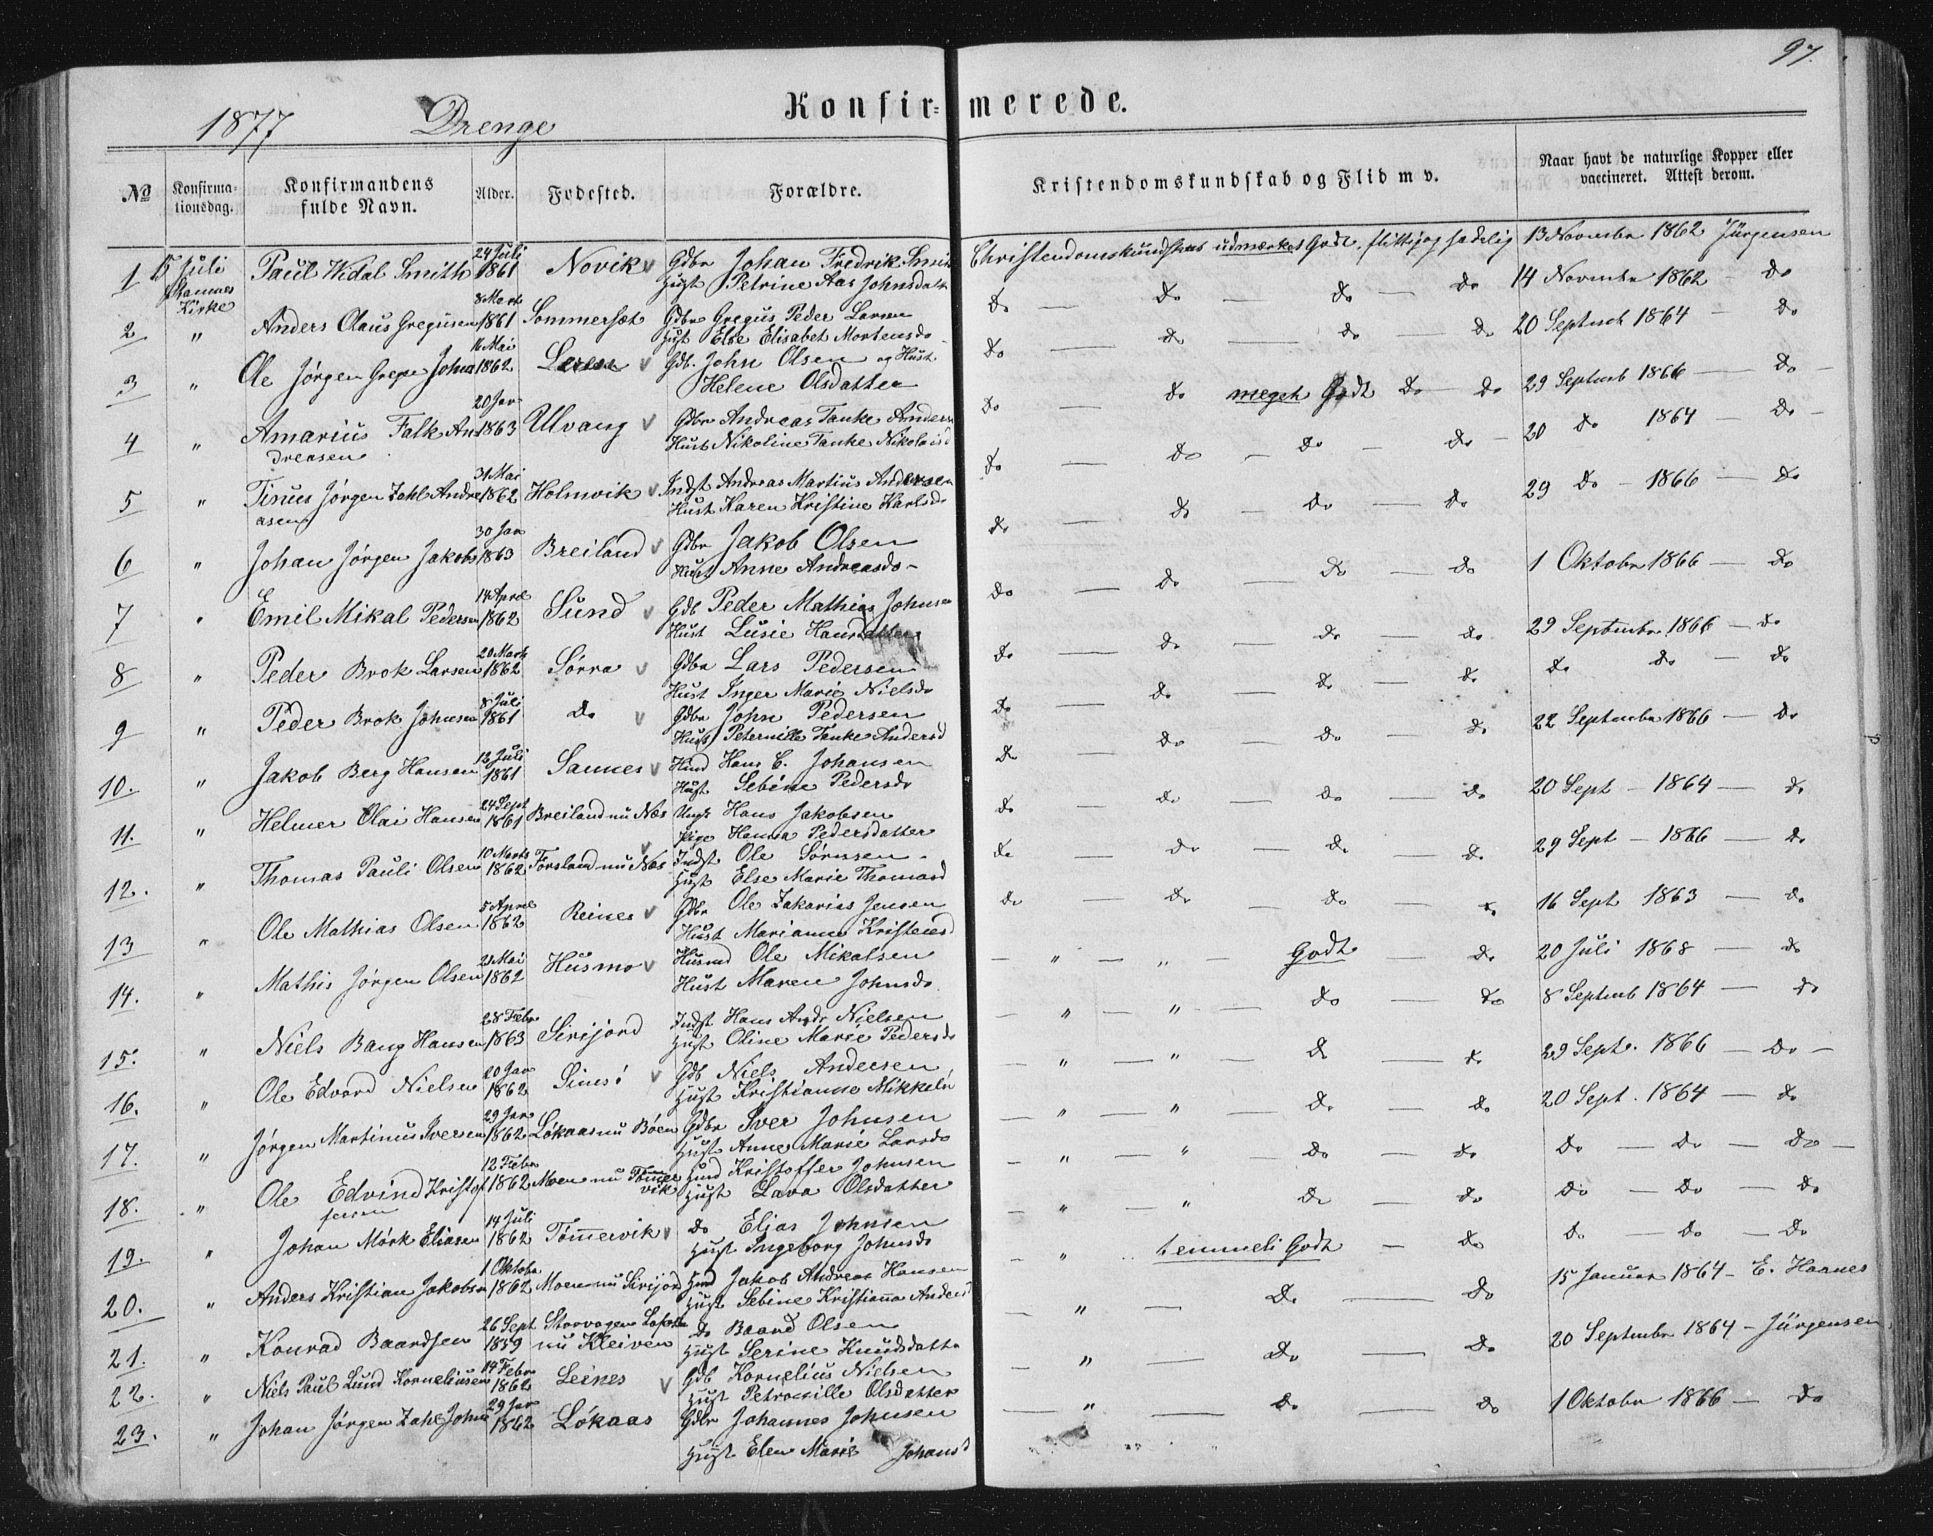 97.
1877 Drenge Konfir-merede.
No Konfirmationsdag. Konfirmandens fulde Navn. Alder. Fodested. Forældre. Kristendomskundskab og Flid m v. Naar havt de naturlige Kopper eller vaccineret. Attest derom.
1 Juli Sannes Kirke Paul Widal Smith 24 Juli 1861 Novik Gdbr Johan Fredrik Smith Hust Petrine Aas Johnsdatr Christendomskundskab udmærket Godt, flittig og sædelig 13 Novembr 1862 Jürgensen
2 " Anders Olaus Gregusen 8 Marts 1861 Sommersæt Gdbr Gregus Peder Larsen Hust Else Elisabet Mortensdr Do — Do — Do — Do 14 Novembr 1862 — Do
3 " Ole Jørgen Johns 16 Mai 1862 Gdb. John Olsen og Hust. Helene Olsdatter Do — Do — Do — Do 20 Septemb 1864 — Do
4 " Amarius Falk Andreasen 20 Jan 1863 Ulvang Gdbr Andreas Tanke Anders Hust Nikoline Tanke Nikolaisd Do — Do meget Godt Do — Do 29 Septemb 1866 — Do —
5 " Tinus Jørgen Zahl Andreasen 31 Mai 1862 Holmvik Indst Andreas Martius Andersen Hust Karen Kristine Karlsdr Do — Do — Do — Do — 20 Do 1864 — Do —
6 " Johan Jørgen Jakobs 30 Jan 1863 Breiland Gdbr Jakob Olsen Hust Anne Andreasdr — Do — Do — Do — Do 29 Do — 1866 — Do
7 " Emil Mikal Pedersen 14 April 1862 Sund Gdb Peder Mathias Johnsen Hust Lusie Hansdatter Do — Do — Do — Do 1 Oktobr 1866 — Do
8 " Peder Brok Larsen 20 Marts 1862 Sørra Gdbr Lars Pedersen Hust Inger Marie Nielsdr Do — Do — Do — Do 29 Septembr 1866 — Do
9 " Peder Brok Johnsen 8 Juli 1861 Do Gdbr John Pedersen Hust Peternille Tanke Andersd Do — Do — Do — Do Do Do — Do
10. " Jakob Berg Hansen 12 Juli 1861 Sannes Hmd Hans E. Johansen Hust Sebine Pedersdr Do — Do — Do — Do 22 Septembr 1866 — Do
11. " Helmer Olai Hansen 24 Sept 1861 Breiland nu Næs Ungk Hans Jakobsen Pige Hanna Pedersdatter Do — Do — Do — Do 20 Sept — 1864 — Do
12. " Thomas Pauli Olsen 10 Marts 1862 Forsland nu Næs Indst Ole Sørnsen Hust Else Marie Thomasd Do — Do — Do — Do 29 Sept — 1866 — Do
13 " Ole Mathias Olsen 5 April 1862 Reines Gdbr Ole Zakarias Jensen Hust Marianne Kristensd Do — Do — Do — Do 16 Sept 1863 — Do
14. " Mathis Jørgen Olsen 2 Mai 1862 Husmo Husmd Ole Mikalsen Hust Maren Johnsdr. — " — " — Godt — Do 20 Juli 1868 — Do
15. " Niels Bang Hansen 28 Febr 1863 Sirijord Indst Hans Andr Nielsen Hust Oline Marie Pedersdr — " — " — Do — Do 8 Septemb 1864 — Do
16. " Ole Edvard Nielsen 20 Jan 1862 Gdb Niels Andersen Hust Kristianne Mikkels — " — " — Do — Do 29 Sept. 1866 — Do —
17. " Jørgen Martinus Iversen 29 Jan 1862 Løkaas nu Bøen Gdbr Iver Johnsen Hust Anne Marie Larsdr — " — " — Do — Do 20 Sept. 1864 — Do
18. " Ole Edvind Kristoffersen 12 Febr 1862 Moen nu Tømervik Hmd Kristoffer Johnsen Hust Lava Olsdatter — " — " Do — Do Do — Do — Do —
19. " Johan Mørk Eliasen 14 Juli 1862 Tømervik Do Elias Johnsen Hust Ingeborg Johnsdr — " — " Do — Do Do — Do — Do
20. " Anders Kristian Jakobsen 1 Oktobr 1862 Moen nu Sirijord Hmd Jakob Andreas Hansen Hust Sebine Kristianna Anders — " temmeli Godt — Do Do — Do — Do
21. " Konrad Baardsen 26 Sept 1859 Storvagen Lofoten nu Kleiven Do Baard Olsen Hust Serine Knudsdatter — " — Do — Do 15 Januar 1864 — E. Haanes
22. " Niels Paul Lund Korneliusen 14 Febr 1862 Leines Gdb Kornelius Nielsen Hust Petronille Olsdatter — " — Do — Do 20 Septembr 1864 — Jürgensen
23. " Johan Jørgen Zahl Johns 29 Jan 1862 Løkaas Gdbr Johannes Johnsen Hust Elen Marie Johansd — " — Do — Do 1 Oktobr 1866 — Do